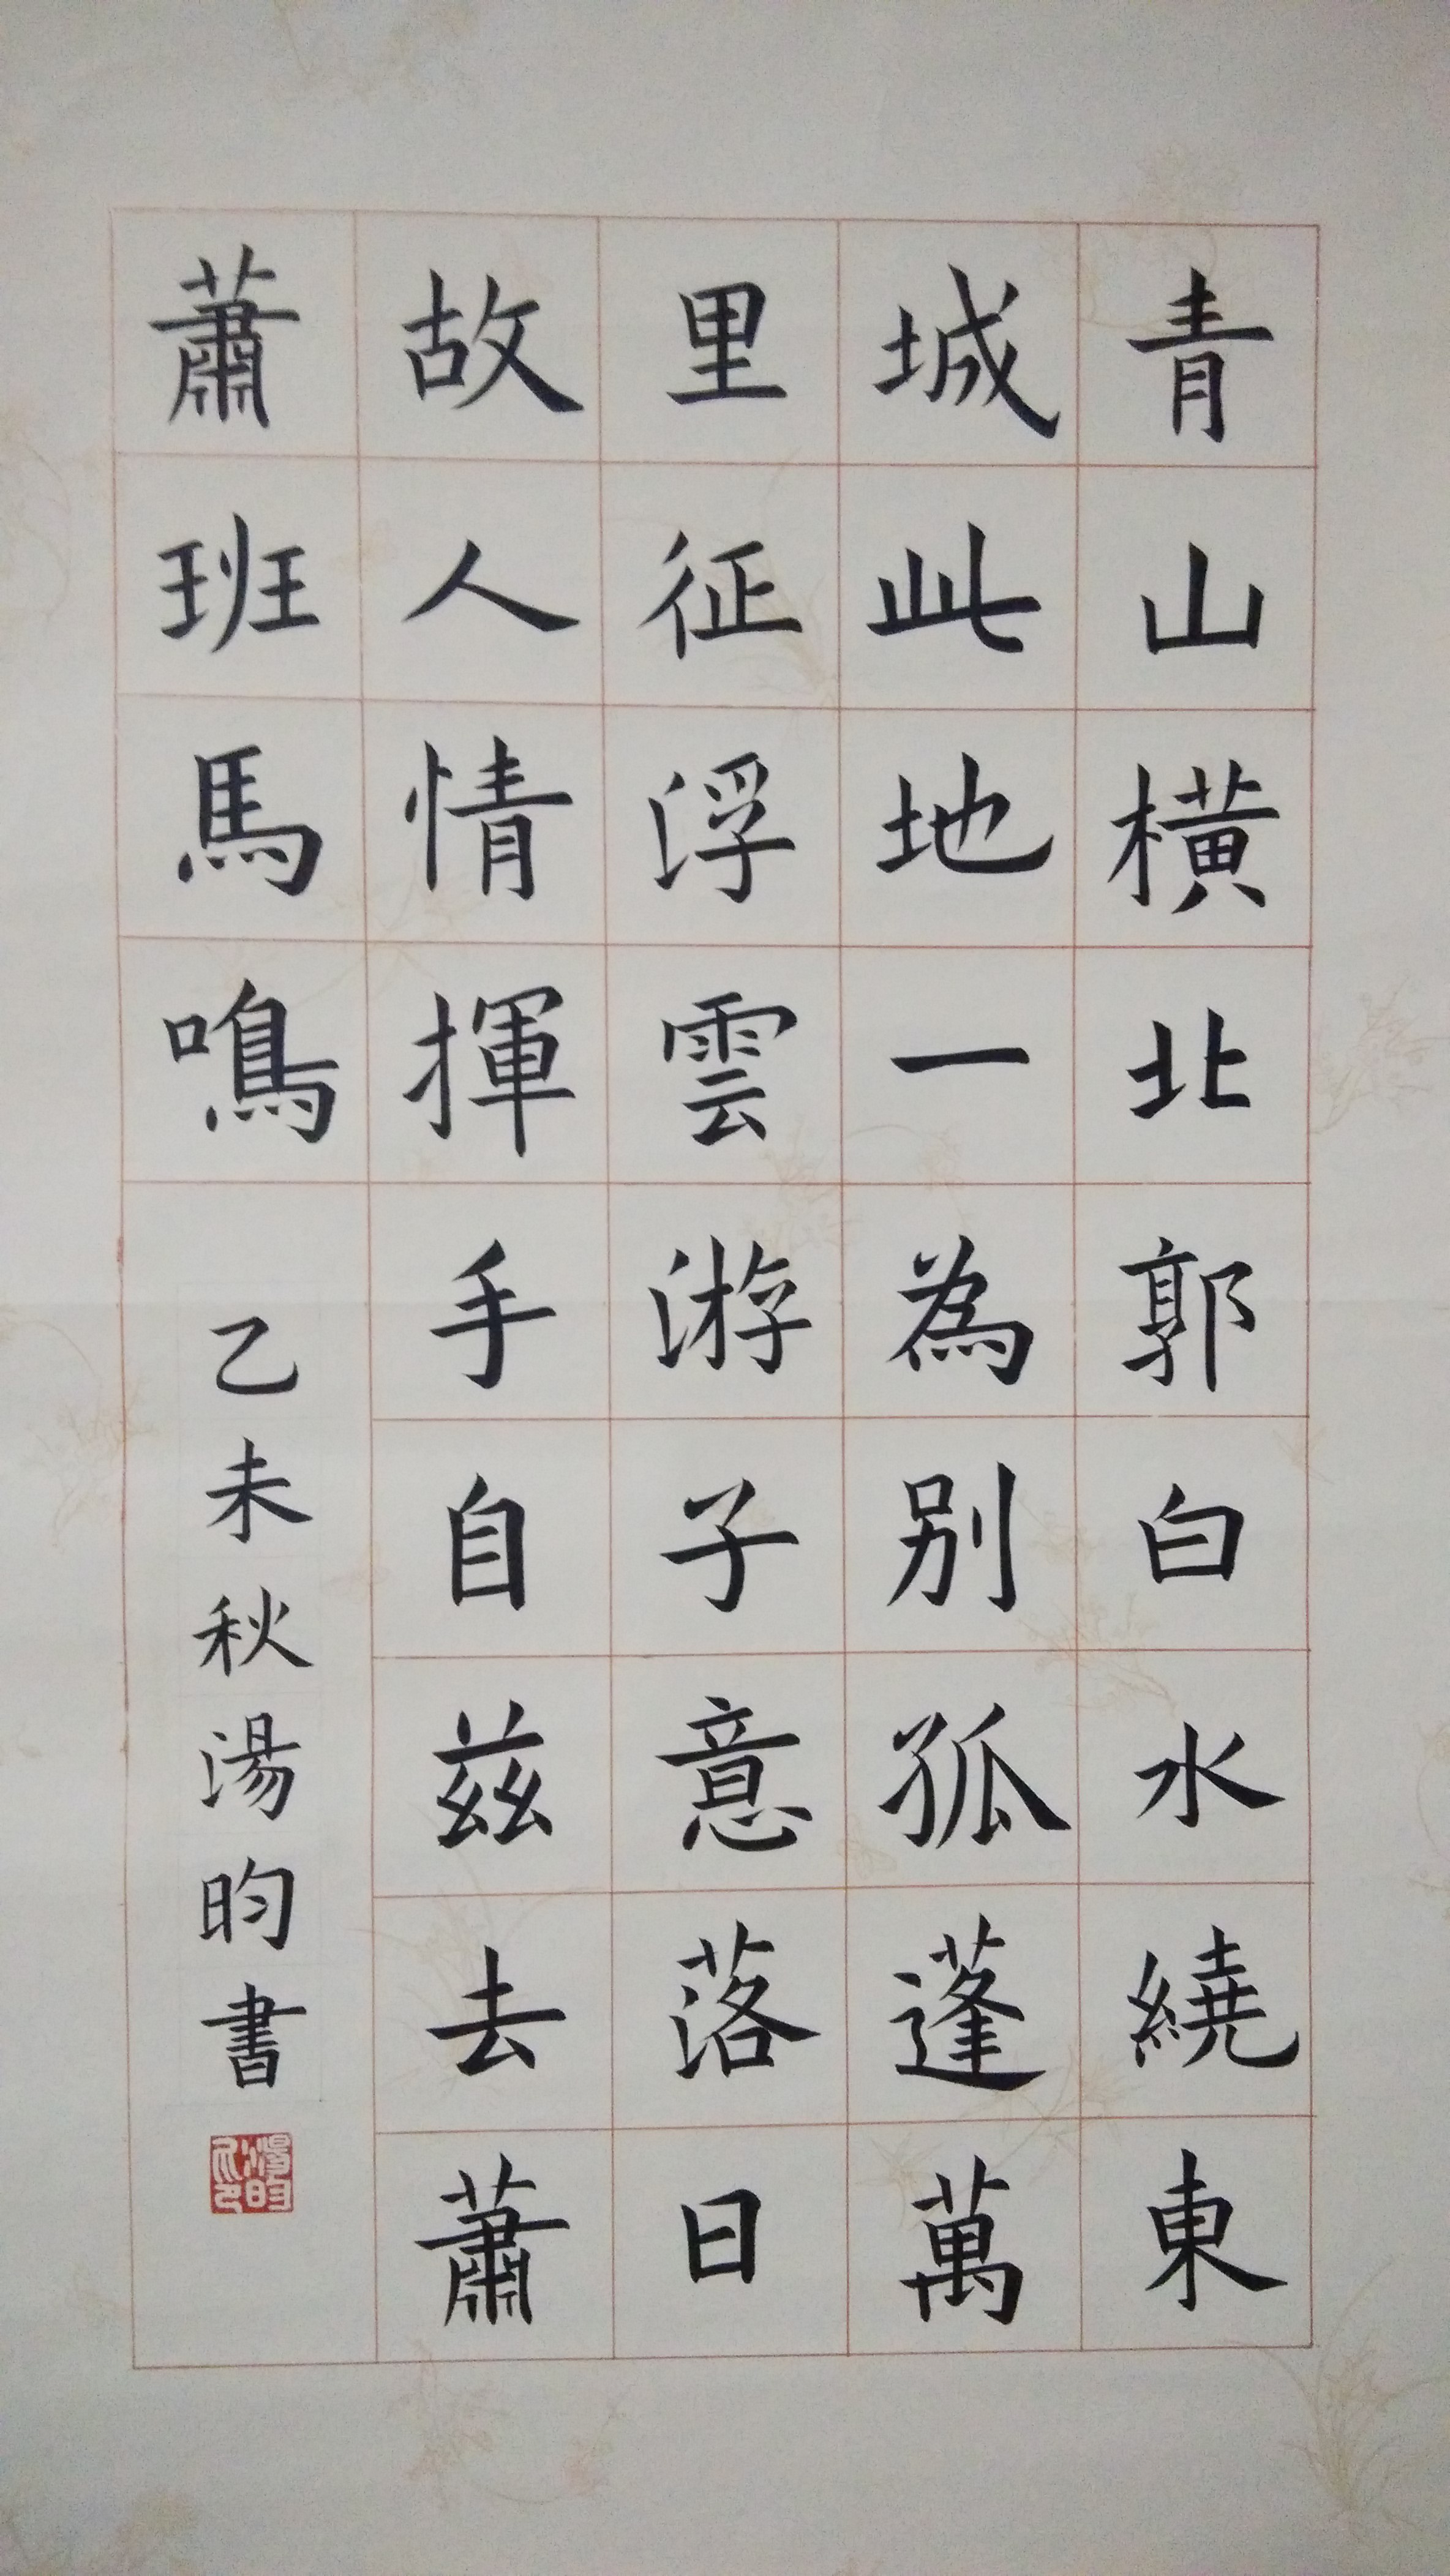 青山橫北郭白水繞東
城此地一為别孤蓬萬
里征浮雲游子意落日
故人情揮手自兹去蕭
蕭班馬鳴
乙未秋湯昀書